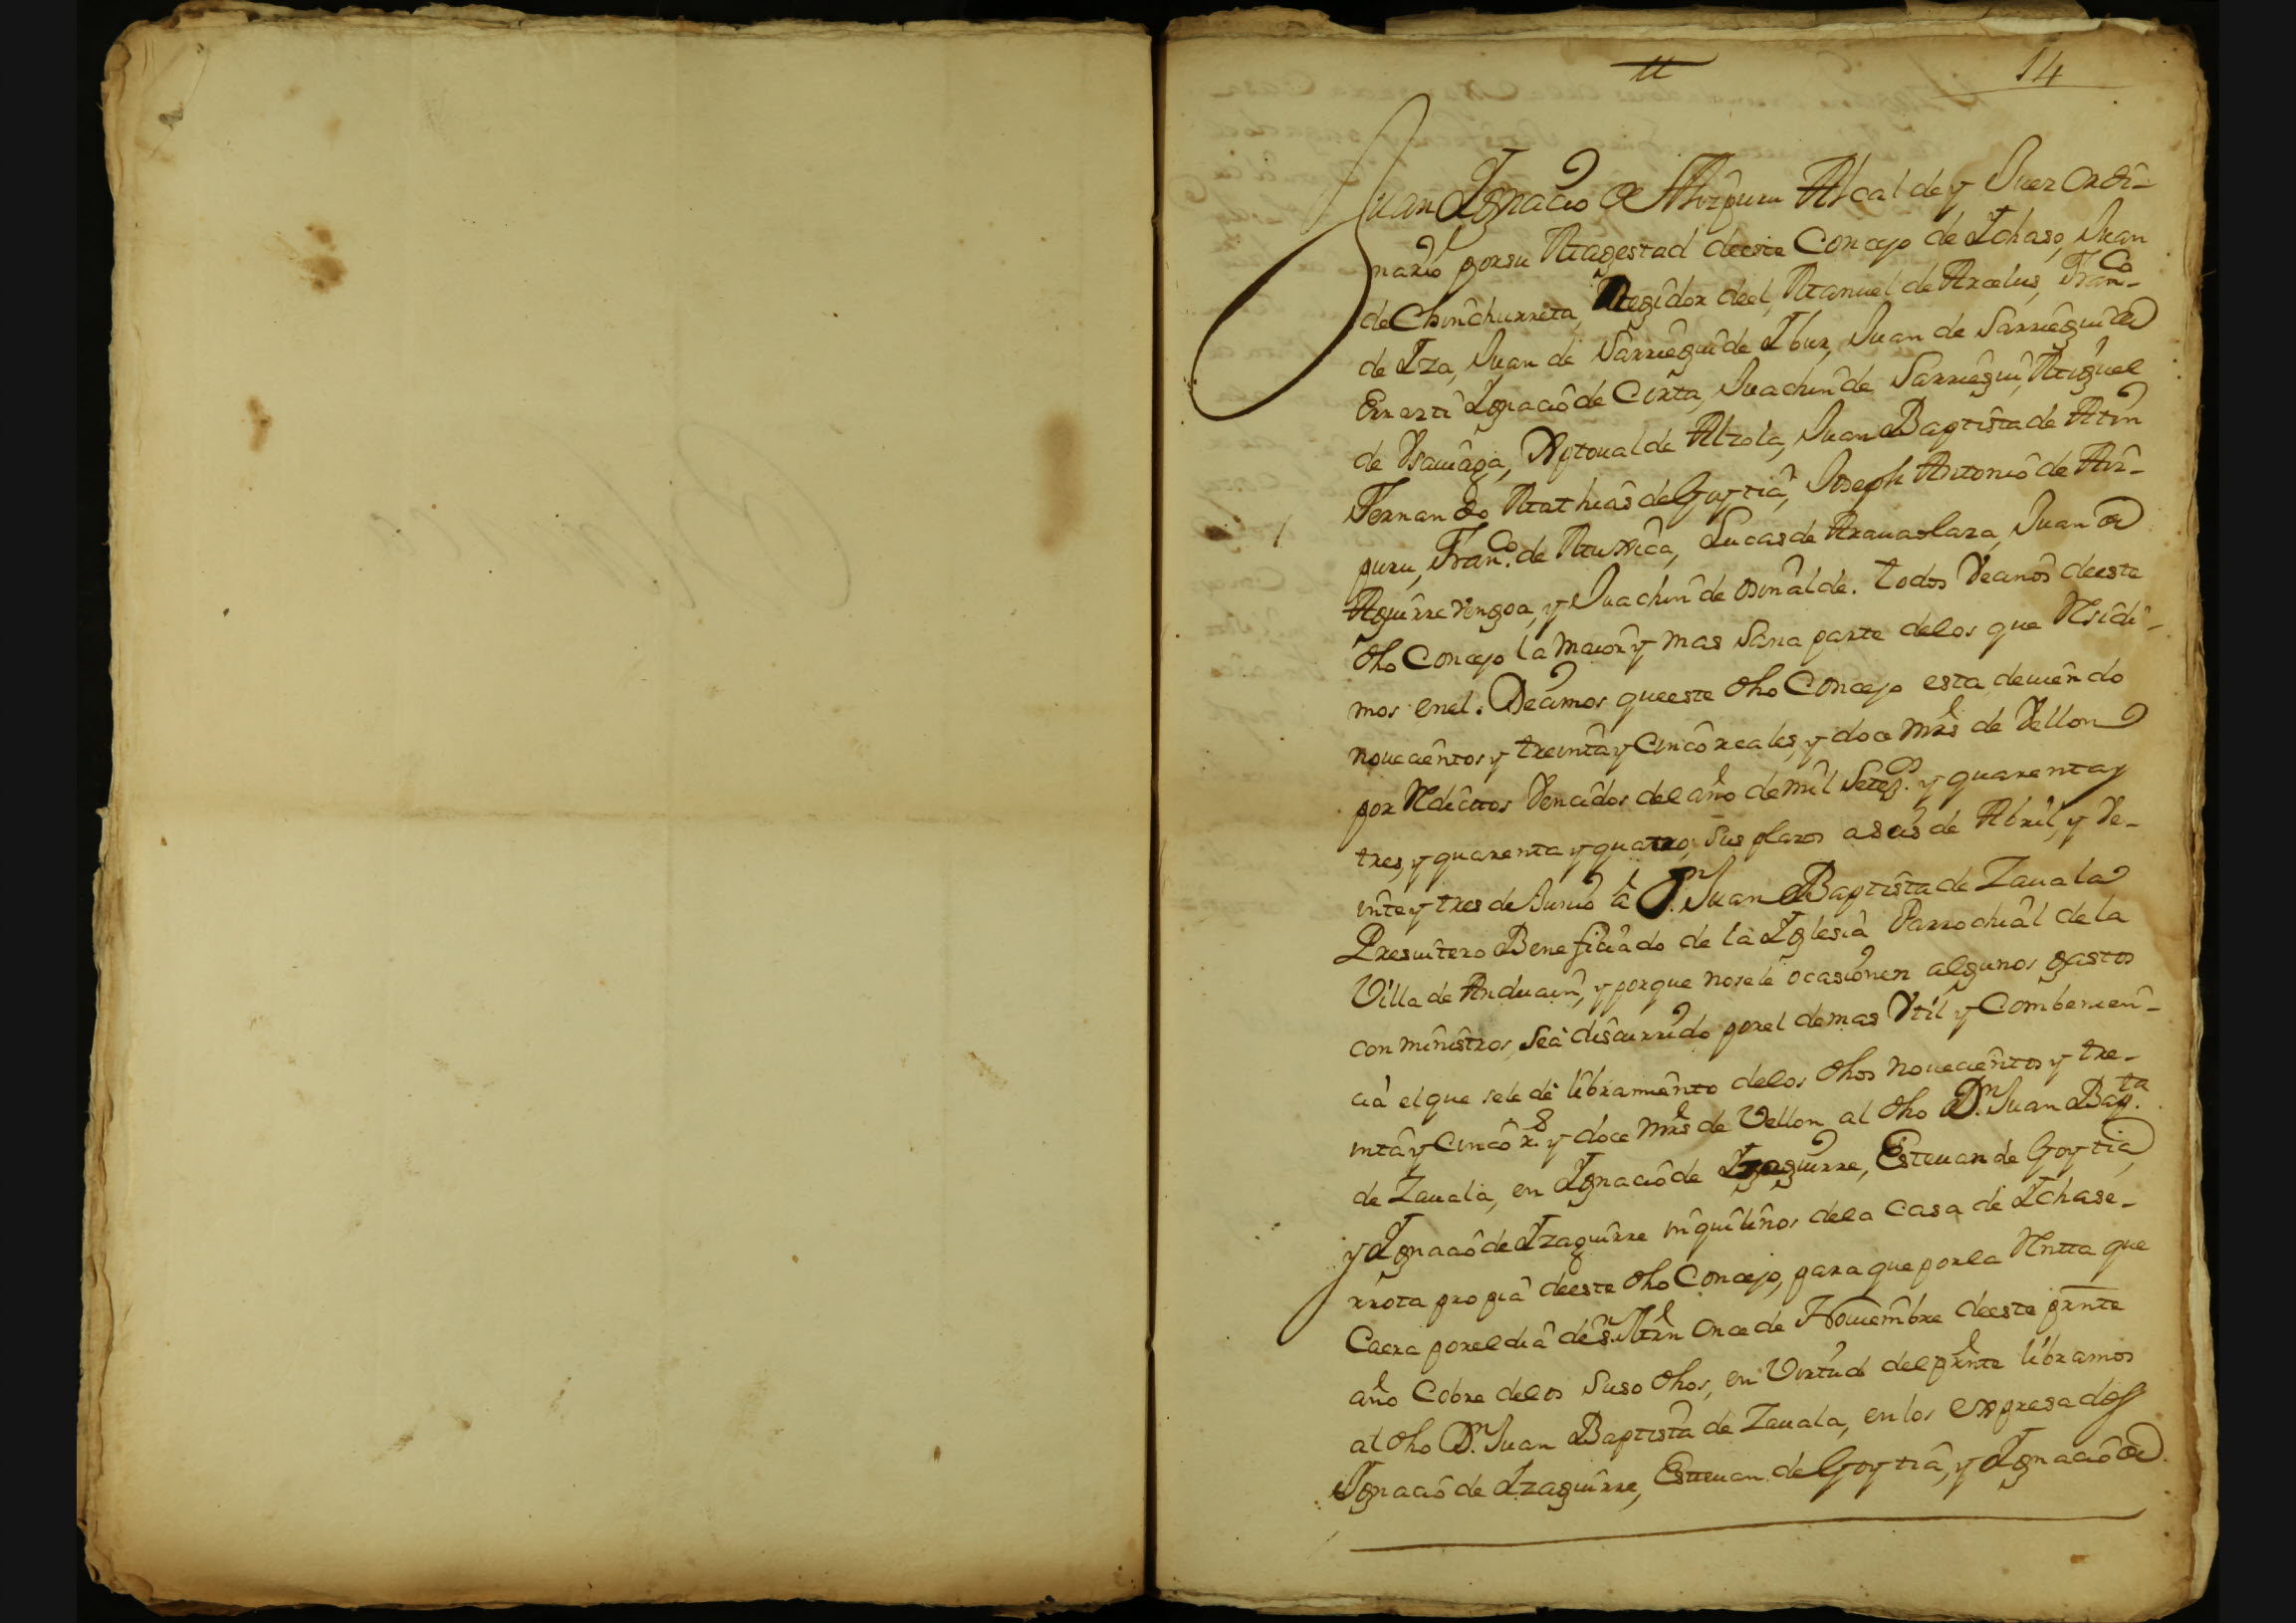 14
Juan Ignacio de Aizpuru Alcalde y Juez ordi-
nario por su Magestad de este Concejo de Ichaso, Juan
de Chinchurreta, Regidor de el, Manuel de Arcelus, Fran^co
de Iza, Juan de Sarriegui de Ibur, Juan de Sarriegui de
Ernarti Ignacio de Cirta, Juachin de Sarriegui, Miguel
de Vsauiaga, Xptoual de Alzola, Juan Baptista de Atin
Fernando Mathias de Goytia, Joseph Antonio de Aiz-
puru, Fran^co. de Muxica, Lucas de Aranaolaza, Juan de
Aguirre vengoa, y Juachin de osinalde. todos Vecinos de este
dho Concejo la maior y mas sana parte delos que Residi-
mos enel. Decimos que este dho Concejo esta deuiendo
nouecientos y treinta y cinco reales, y doce mrs de Vellon
por Reditos Vencidos del año de mil Setez^os. y quarenta y
tres, y quarenta y quatro, sus plazos a seis de Abril, y Ve-
inte y tres de Junio à D^n. Juan Baptista de Zauala
Presuitero Beneficiado de la Iglesia Parrochial de la
Villa de Anduain, y porque nosele ocasionen algunos gastos
con ministros, seà discurrido porel demas Vtil y Combenien-
cia el que sele dè libramiento delos dhos nouecientos y tre-
inta y cinco r^s. y doce mrs de Vellon al dho D^n. Juan Bap^ta.
de Zauala, en Ignacio de Izaguirre, Esteuan de Goytia,
y Ignacio de Izaguirre inquilinos dela Casa de Ichase-
rrota propia de este dho Concejo, para que porla Rentta que
Caera porel dia de S^n. Mrn once de Nouiembre de este prnte
año Cobre delos suso dhos, en Virtud del prnte libramos
al dho D^n. Juan Baptista de Zauala, en los expresados
Ignacio de Izaguirre, Esteuan de Goytia, y Ignacio de